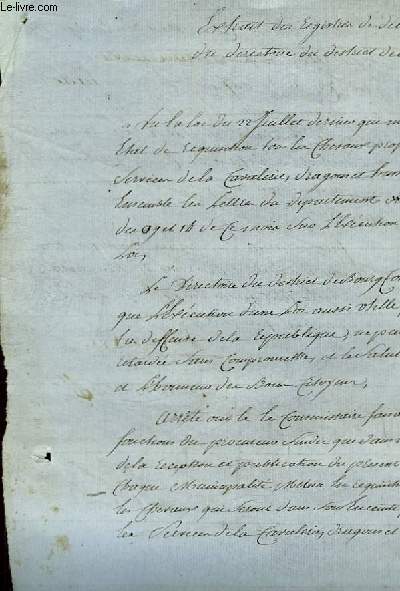 Le-livre.com
Extrait des Registres de dé
du directoire du district de
Vu la loi du 22 Juillet dernier que m
Etat de Requisition tou les Chevaux prop
Service de la Cavalerie, Dragons et
Ensemble la Lettre du departement
des 9 et 14 de Ce mois Sur L'Exécution
Loi,
Le Directoire du district de Bourg Co
que L'Exécution d'une Loi aussi utile
la deffense de la République, ne peu
retardée Sans Compromettre, et le Salut
et L'honneur du Bon Citoyen,
Arrête ouï le Commissaire faisant
fonctions du procureur Sindic que dans
de la reception et publication du présent
Chaque Municipalité Mettra en requisition
les Chevaux qui Seront dans Son Enceinte
le Service de la Cavalerie, Dragons et